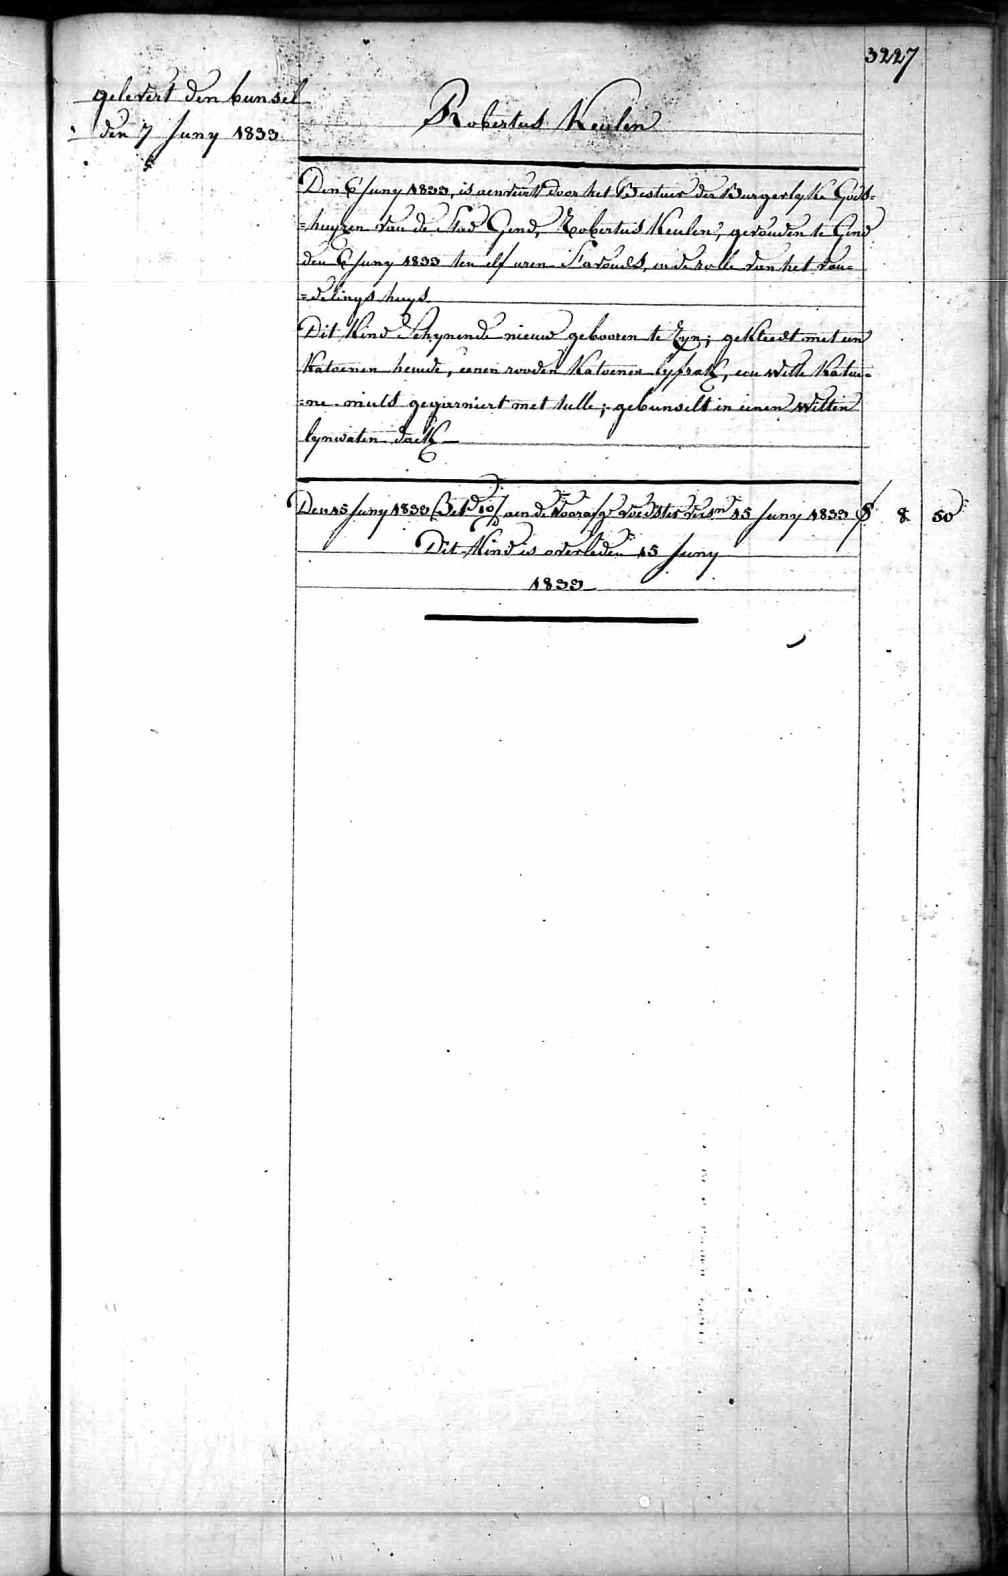 3227
gelevert den bunsel
den 7 Juny 1833
Robertus Keulen
Den 6 Juny 1833, is aenveirt door het Bestuer der Burgerlyke Gods=
=huyzen van de Stad Gend, Robertus Keulen, gevonden te Gend
den 6 Juny 1833 ten elf uren S'avonds, in de rolle van het von=
=delings huys
Dit Kind Schynende nieuw gebooren te Zyn; gekleedt met een
Katoenen hemde, eenen rooden Katoenen lyfrak, een witte Katoe=
=ne muts gegarniert met tulle; gebunselt in eenen witten
lynwaten doek
Den 15 Juny 1833 Bet.d aen de voorafg.e voedster 15 Juny 1833 8 50
Dit Kind is overleden 15 Juny
1833